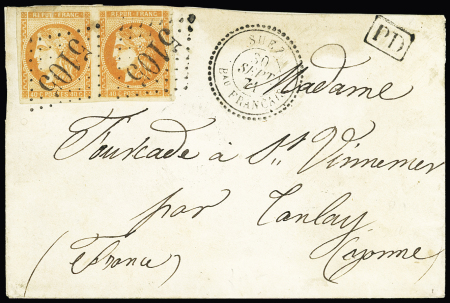 REPUB. FRANC. REPUB. FRANC.
5105 5105
SUEZ
20
SEPT
71
BAU FRANCAIS
PD
Madame
Fourcade à St. Vinnemer
par Tanlay
(France) (Yonne)